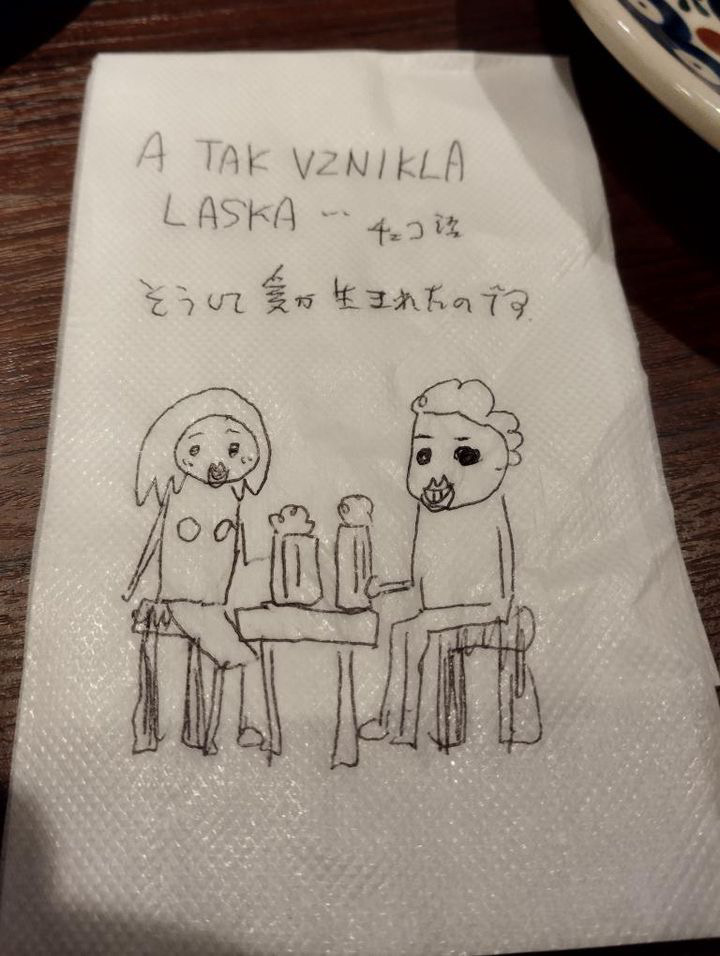 A TAK VZNIKLA
LASKA ... チェコ語
そうして愛が生まれたのです.